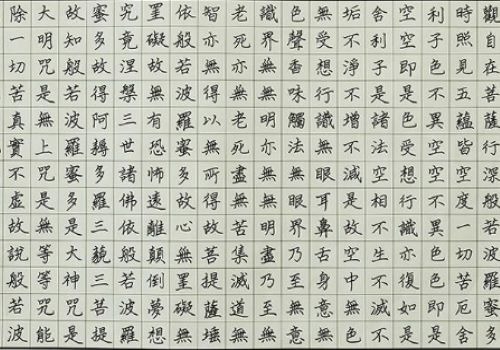 觀自在菩薩行深般若波羅蜜多
時照見五蘊皆空度一切苦厄舍
利子色不異空空不異色色即是
空空即是色受想行識亦復如是
舍利子是諸法空相不生不滅不
垢不淨不增不減是故空中無色
無受想行識無眼耳鼻舌身意無
色聲香味觸法無眼界乃至無意
識界無無明亦無無明盡乃至無
老死亦無老死盡無苦集滅道無
智亦無得以無所得故菩提薩埵
依般若波羅蜜多故心無罣礙無
罣礙故無有恐怖遠離顛倒夢想
究竟涅槃三世諸佛依般若波羅
蜜多故得阿耨多羅三藐三菩提
故知般若波羅蜜多是大神咒是
大明咒是無上咒是無等等咒能
除一切苦真實不虛故說般若波